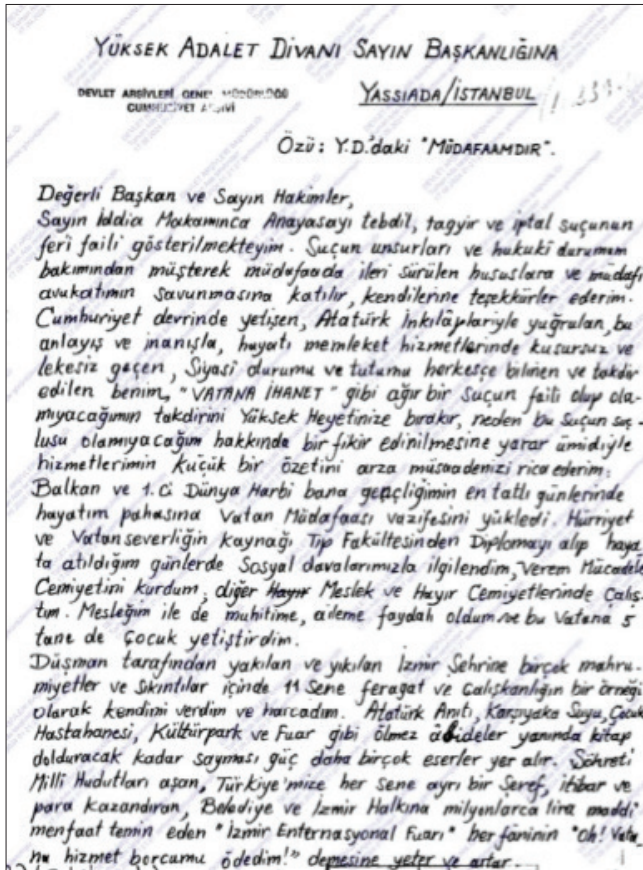 YÜKSEK ADALET DİVANI SAYIN BAŞKANLIĞINA
DEVLET ARŞİVLERİ GENEL MÜDÜRLÜĞÜ
CUMHURİYET ARŞİVİ
YASSIADA/İSTANBUL
Özü: Y.D.'daki "MÜDAFAAMDIR".
Değerli Başkan ve Sayın Hakimler,
Sayın İddia Makamınca Anayasayı tebdil, tagyir ve iptal suçunun
feri faili gösterilmekteyim. Suçun unsurları ve hukukî durumum
bakımından müşterek müdafaada ileri sürülen hususlara ve müdafi
avukatımın savunmasına katılır, kendilerine teşekkürler ederim.
Cumhuriyet devrinde yetişen, Atatürk İnkılâplariyle yuğrulan, bu
anlayış ve inanışla, hayatı memleket hizmetlerinde kusursuz ve
lekesiz geçen, Siyasî durumu ve tutumu herkesçe bilinen ve takdir
edilen benim, "VATANA İHANET" gibi ağır bir suçun faili olup ola-
mıyacağımın takdirini Yüksek Heyetinize bırakır, neden bu Suçun suç-
lusu olamıyacağım hakkında bir fikir edinilmesine yarar ümidiyle
hizmetlerimin küçük bir özetini arza müsaadenizi rica ederim:
Balkan ve 1.Ci Dünya Harbi bana gençliğimin en tatlı günlerinde
hayatım pahasına Vatan Müdafaası vazifesini yükledi. Hürriyet
ve Vatanseverliğin kaynağı Tıp Fakültesinden Diplomayı alıp haya-
ta atıldığım günlerde Sosyal davalarımızla ilgilendim, Verem Mücadele
Cemiyetini kurdum, diğer Hayır Meslek ve Hayır Cemiyetlerinde Çalış-
tım. Mesleğim ile de muhitime, aileme faydalı oldum ve bu Vatana 5
tane de çocuk yetiştirdim.
Düşman tarafından yakılan ve yıkılan İzmir Şehrine birçok mahru-
miyetler ve sıkıntılar içinde 11 Sene feragat ve çalışkanlığın bir örneği
olarak kendimi verdim ve harcadım. Atatürk Anıtı, Karşıyaka Suyu, Çocuk
Hastahanesi, Kültürpark ve Fuar gibi ölmez abideler yanında kitap
dolduracak kadar sayması güç daha birçok eserler yer alır. Şöhreti
Milli Hudutları aşan, Türkiye'mize her sene ayrı bir Şeref, itibar ve
para kazandıran, Belediye ve İzmir Halkına milyonlarca lira maddi
menfaat temin eden "İzmir Enternasyonal Fuarı" her faninin "Oh! Vata-
na hizmet borcumu ödedim!" demesine yeter ve artar.